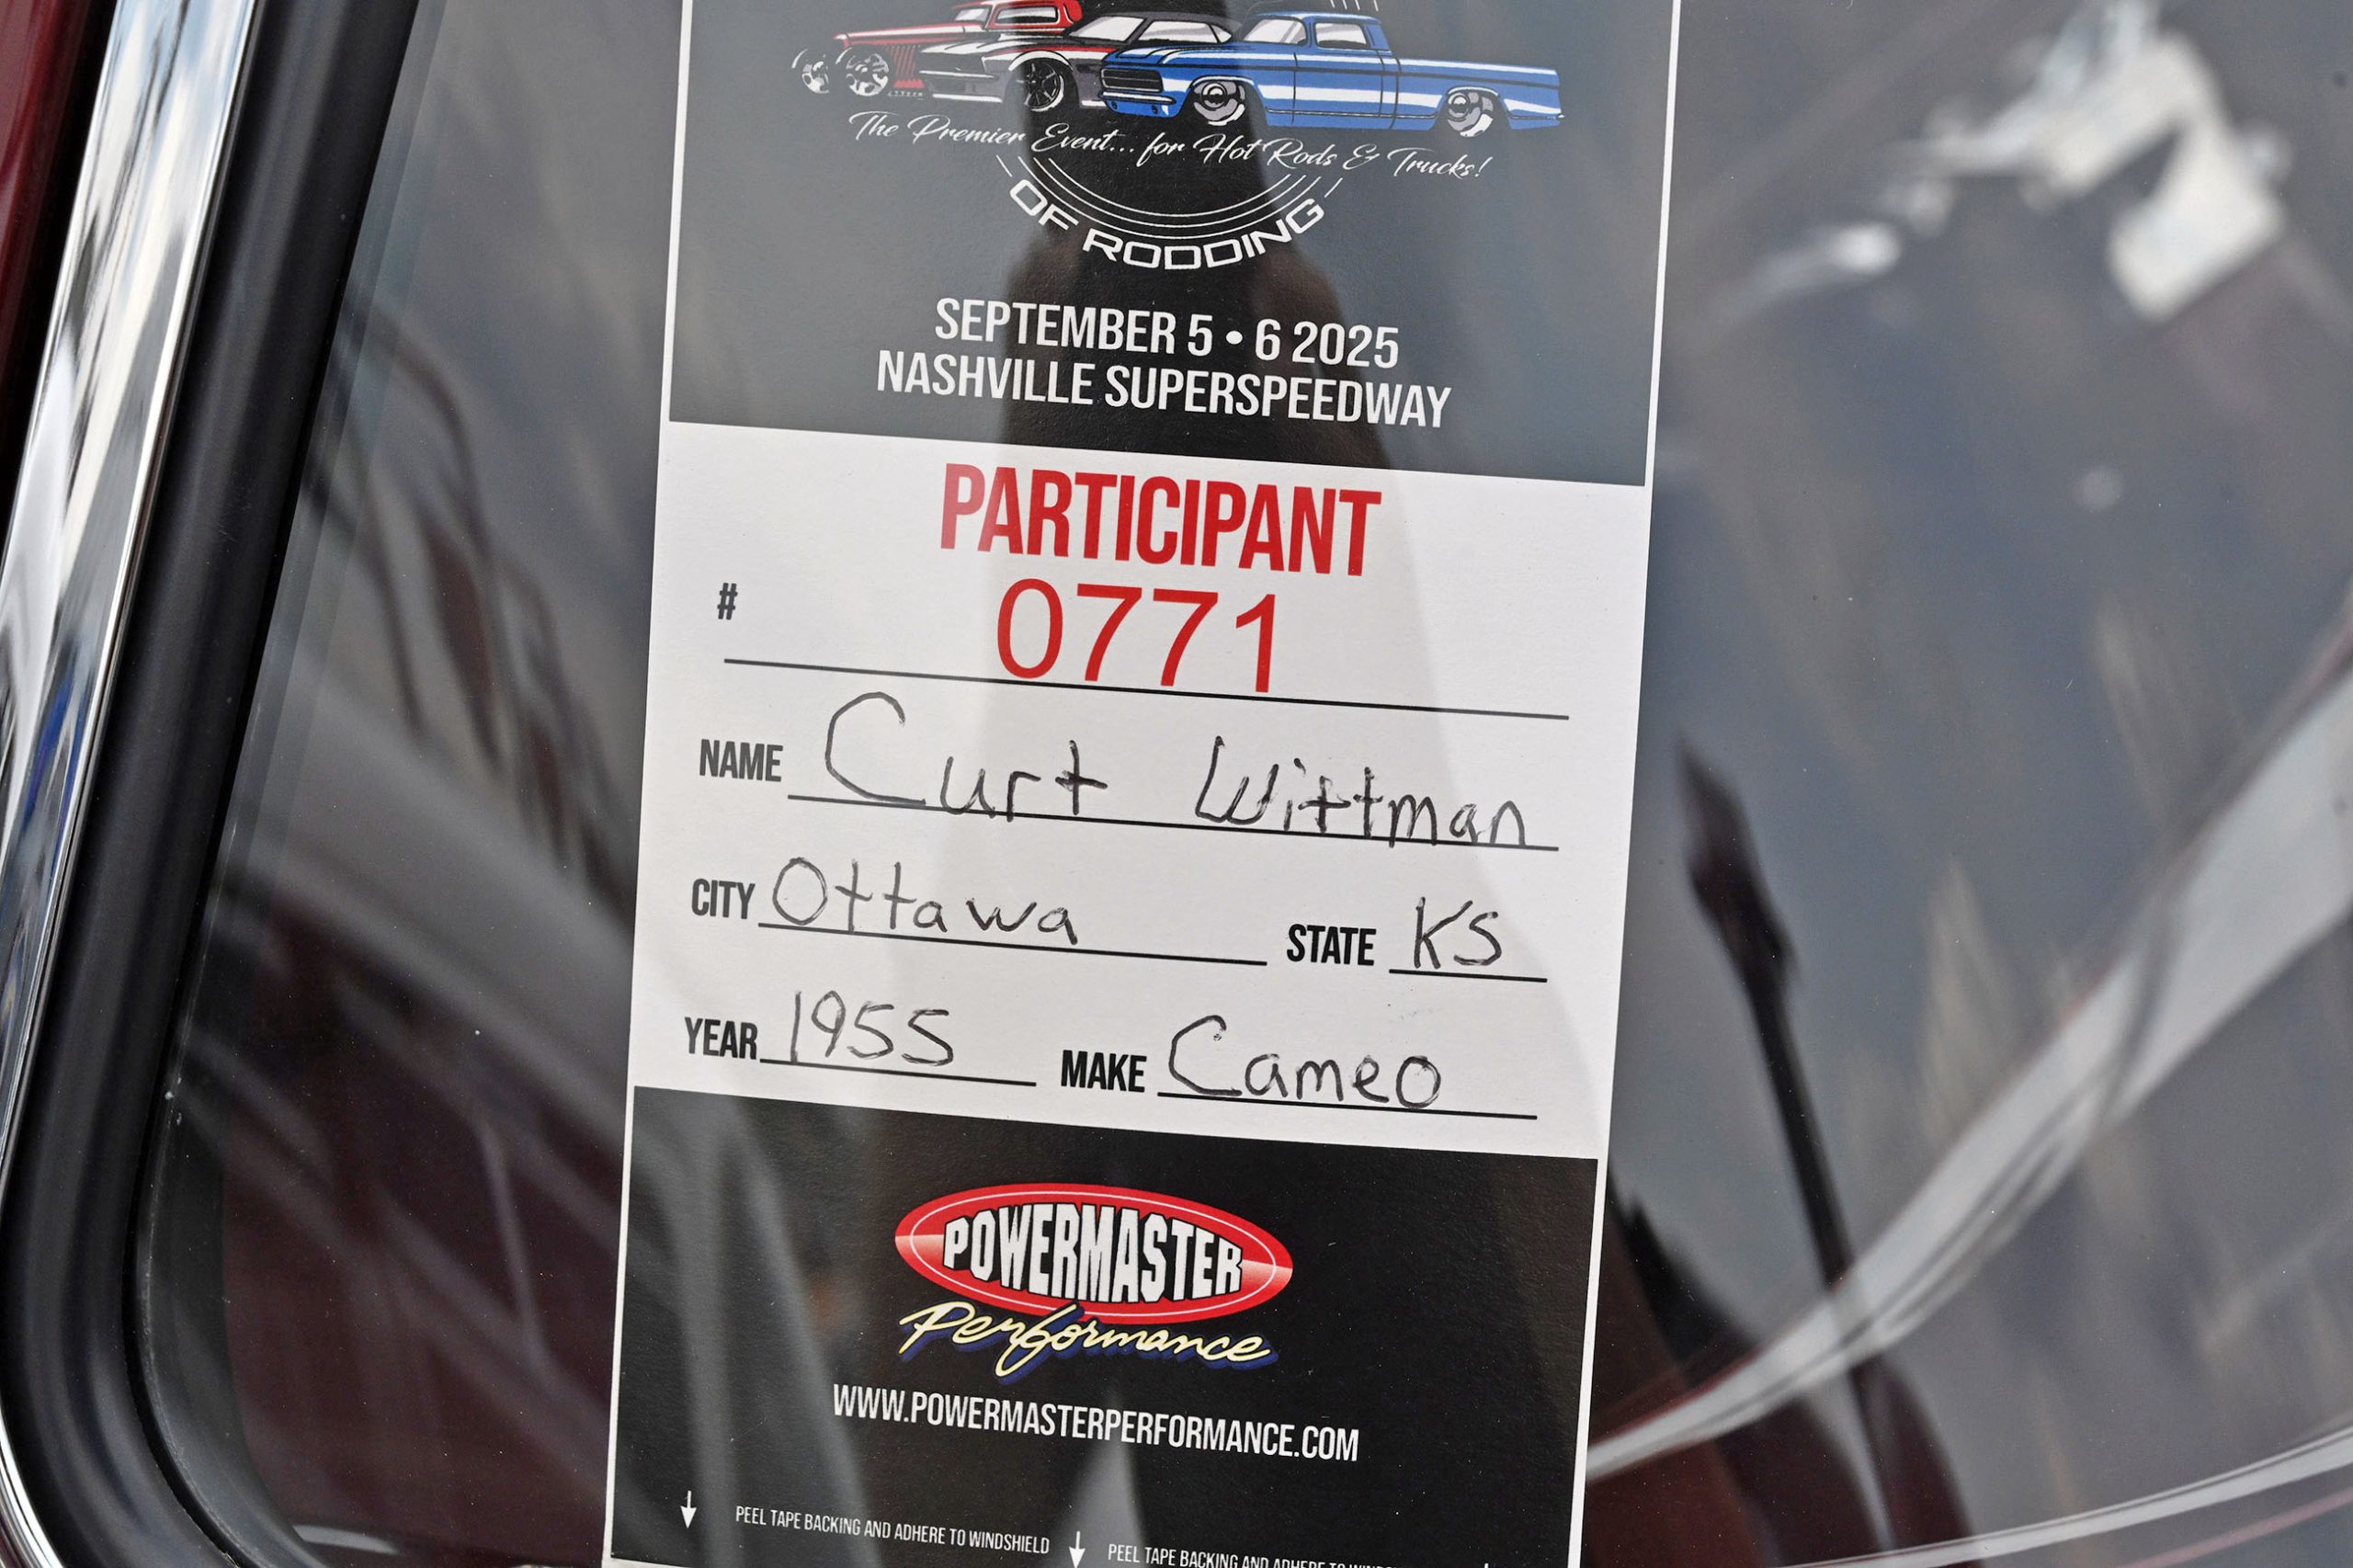 The Premier Event... for Hot Rods & Trucks!
OF RODDING
SEPTEMBER 5 • 6 2025
NASHVILLE SUPERSPEEDWAY
PARTICIPANT
# 0771
NAME Curt Wittman
CITY Ottawa STATE KS
YEAR 1955 MAKE Cameo
POWERMASTER
Performance
WWW.POWERMASTERPERFORMANCE.COM
PEEL TAPE BACKING AND ADHERE TO WINDSHIELD
PEEL TAPE BACKING AND ADHERE TO